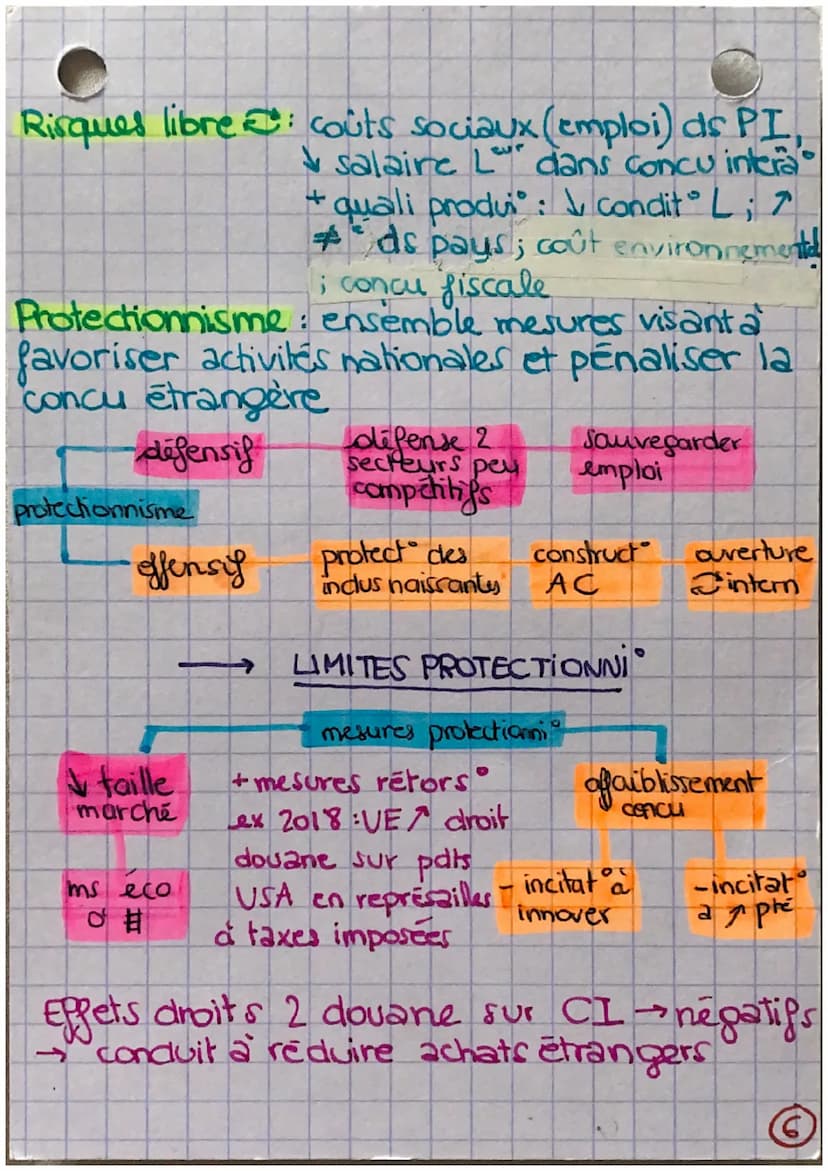 Risques libre ⇄ : coûts sociaux (emploi) ds PI,
↓ salaire L^eur dans concu interna°
+ quali produi° : ↓ condit° L ; ↗
≠ ds pays ; coût environnemental
; concu fiscale
Protectionnisme : ensemble mesures visant à
favoriser activités nationales et pénaliser la
concu étrangère
défensif défense 2 secteurs peu compétitifs sauvegarder emploi
protectionnisme
offensif protect° des indus naissantes construct° AC ouverture ⇄ intern
→ LIMITES PROTECTIONNI°
mesures protectionni°
↓ taille marché
ms éco d' #
+ mesures rétors°
ex 2018 : UE ↗ droit
douane sur pdts
USA en représailles
à taxes imposées
affaiblissement concu
- incitat° à innover
- incitat° à ↗ pté
Effets droits 2 douane sur CI → négatifs
→ conduit à réduire achats étrangers
6